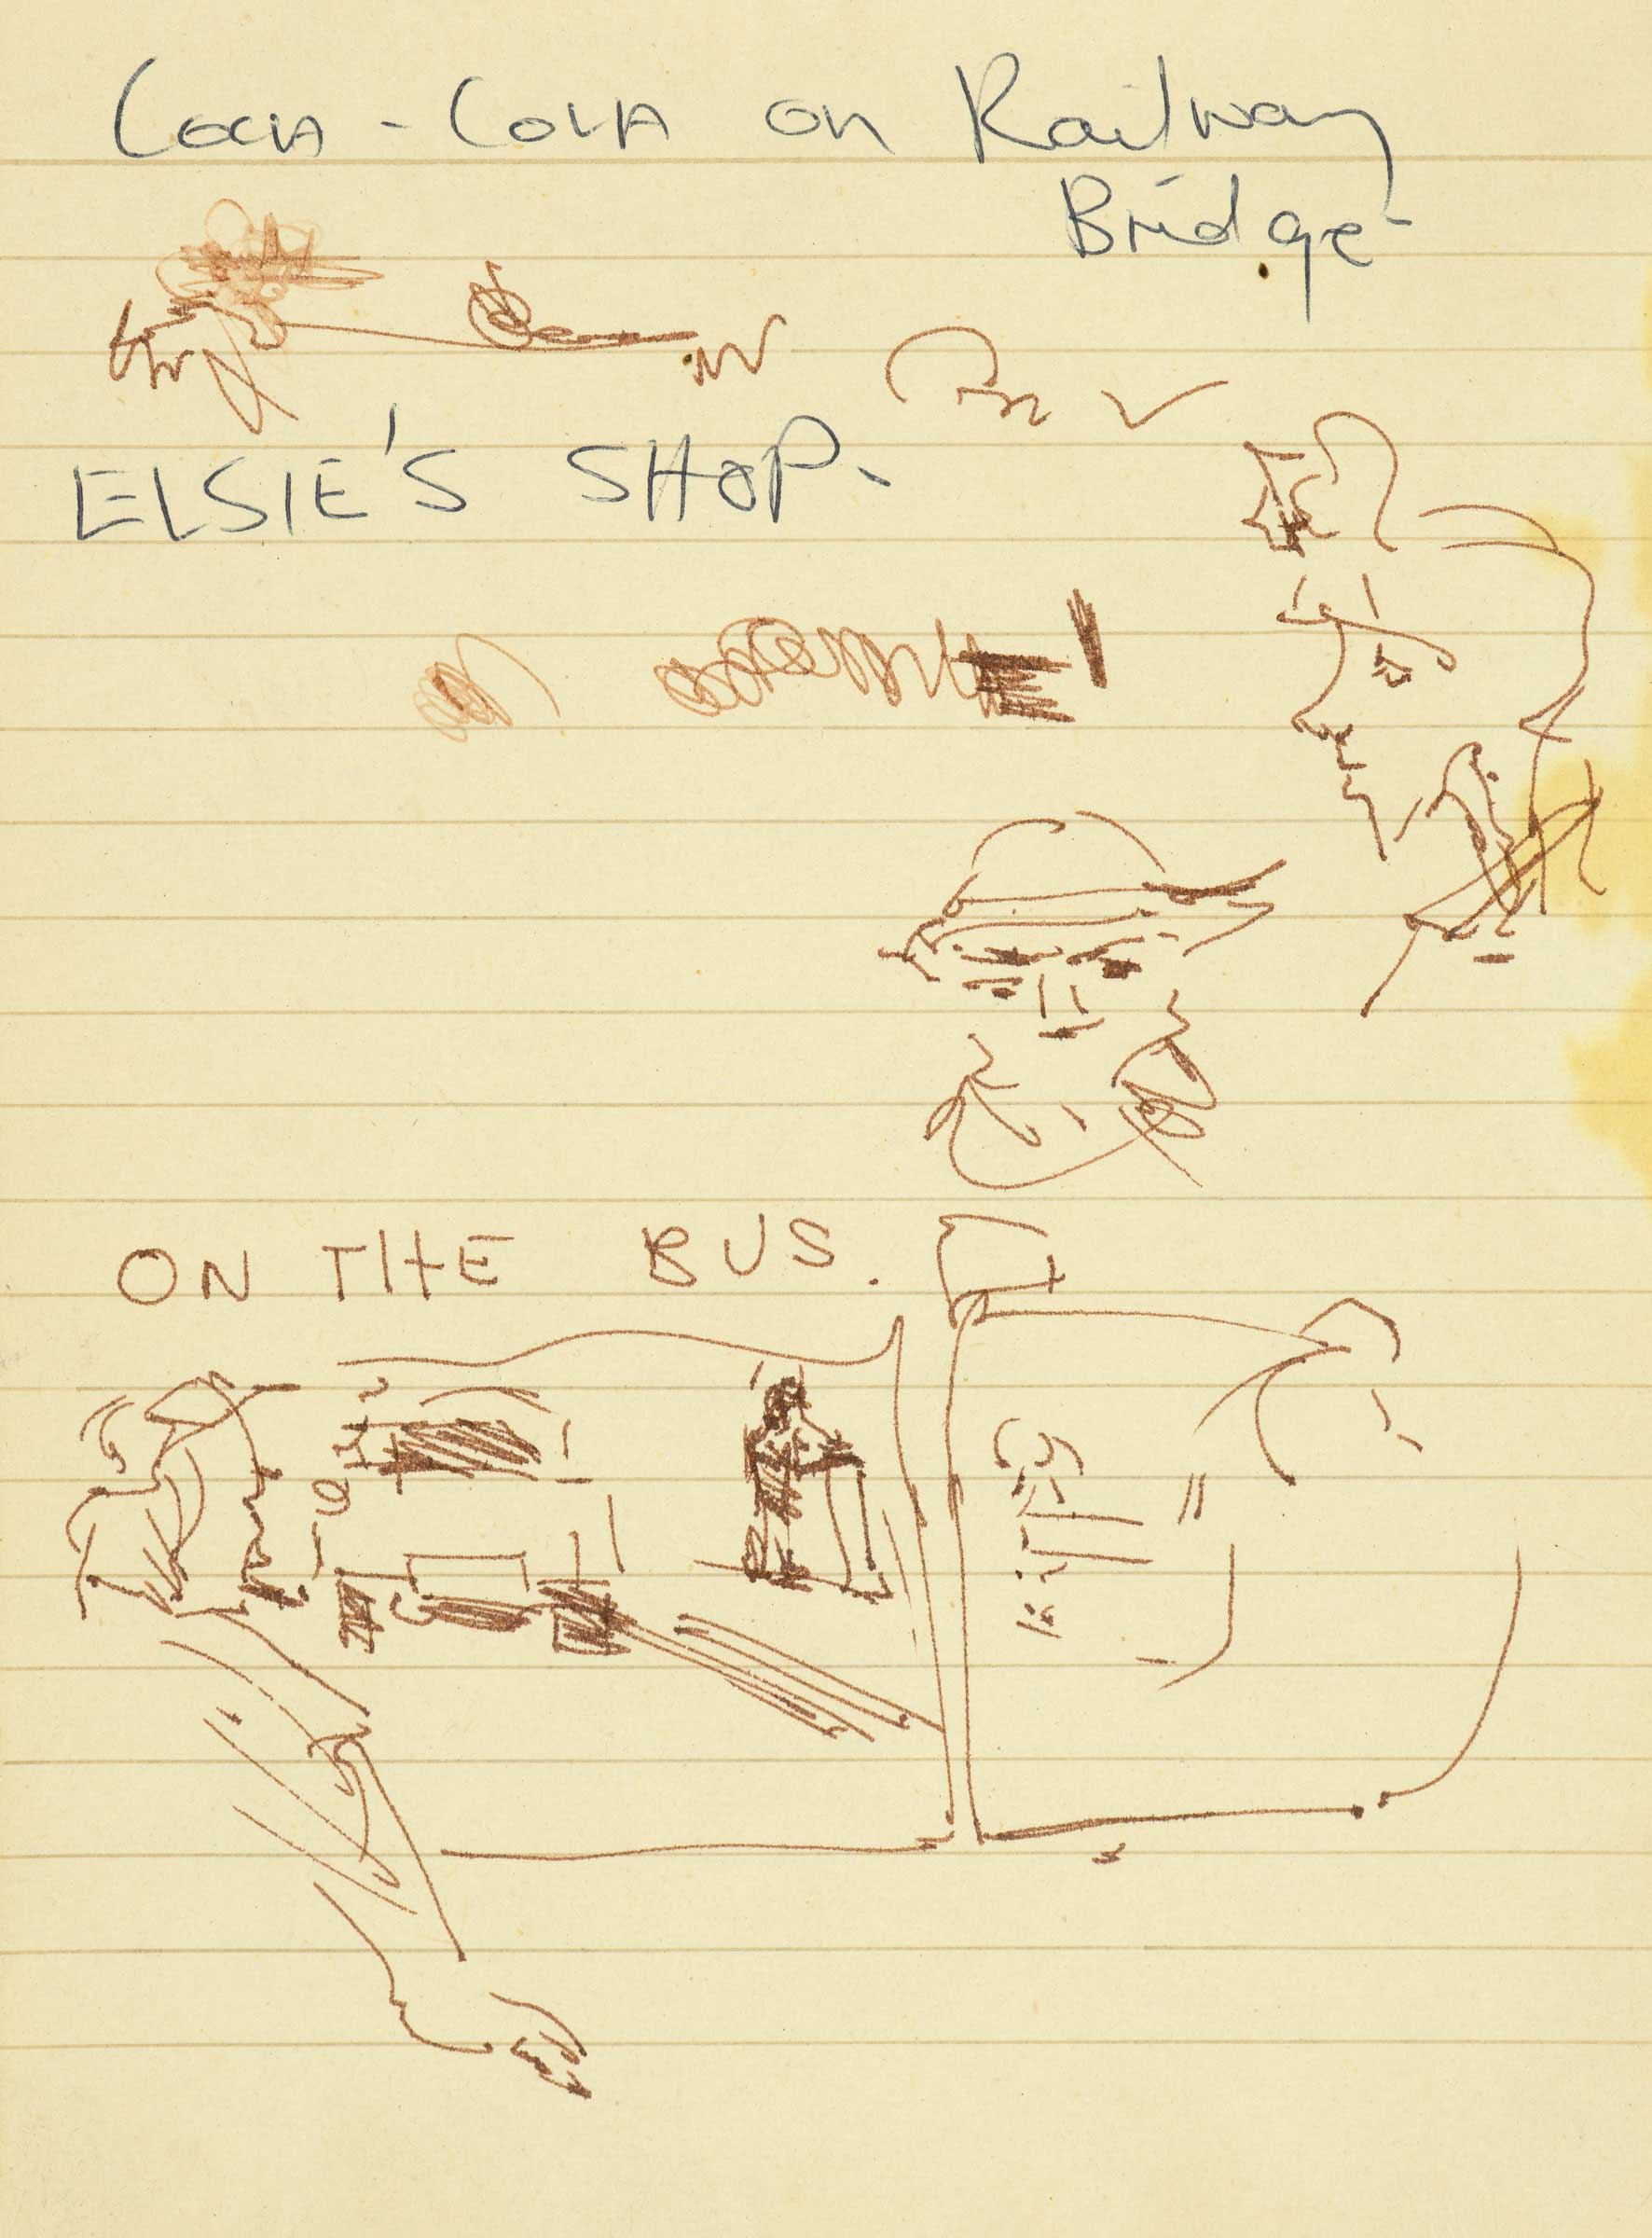 COCA-COLA on Railway
Bridge
ELSIE'S SHOP.
ON THE BUS.